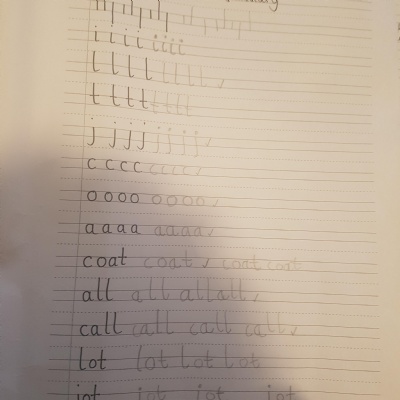 i i i i i i i i
l l l l l l l l
t t t t t t t t
j j j j j j j j
c c c c c c c c
o o o o o o o o
a a a a a a a a
coat coat coat coat
all all all all
call call call call
lot lot lot lot
jot jot jot jot